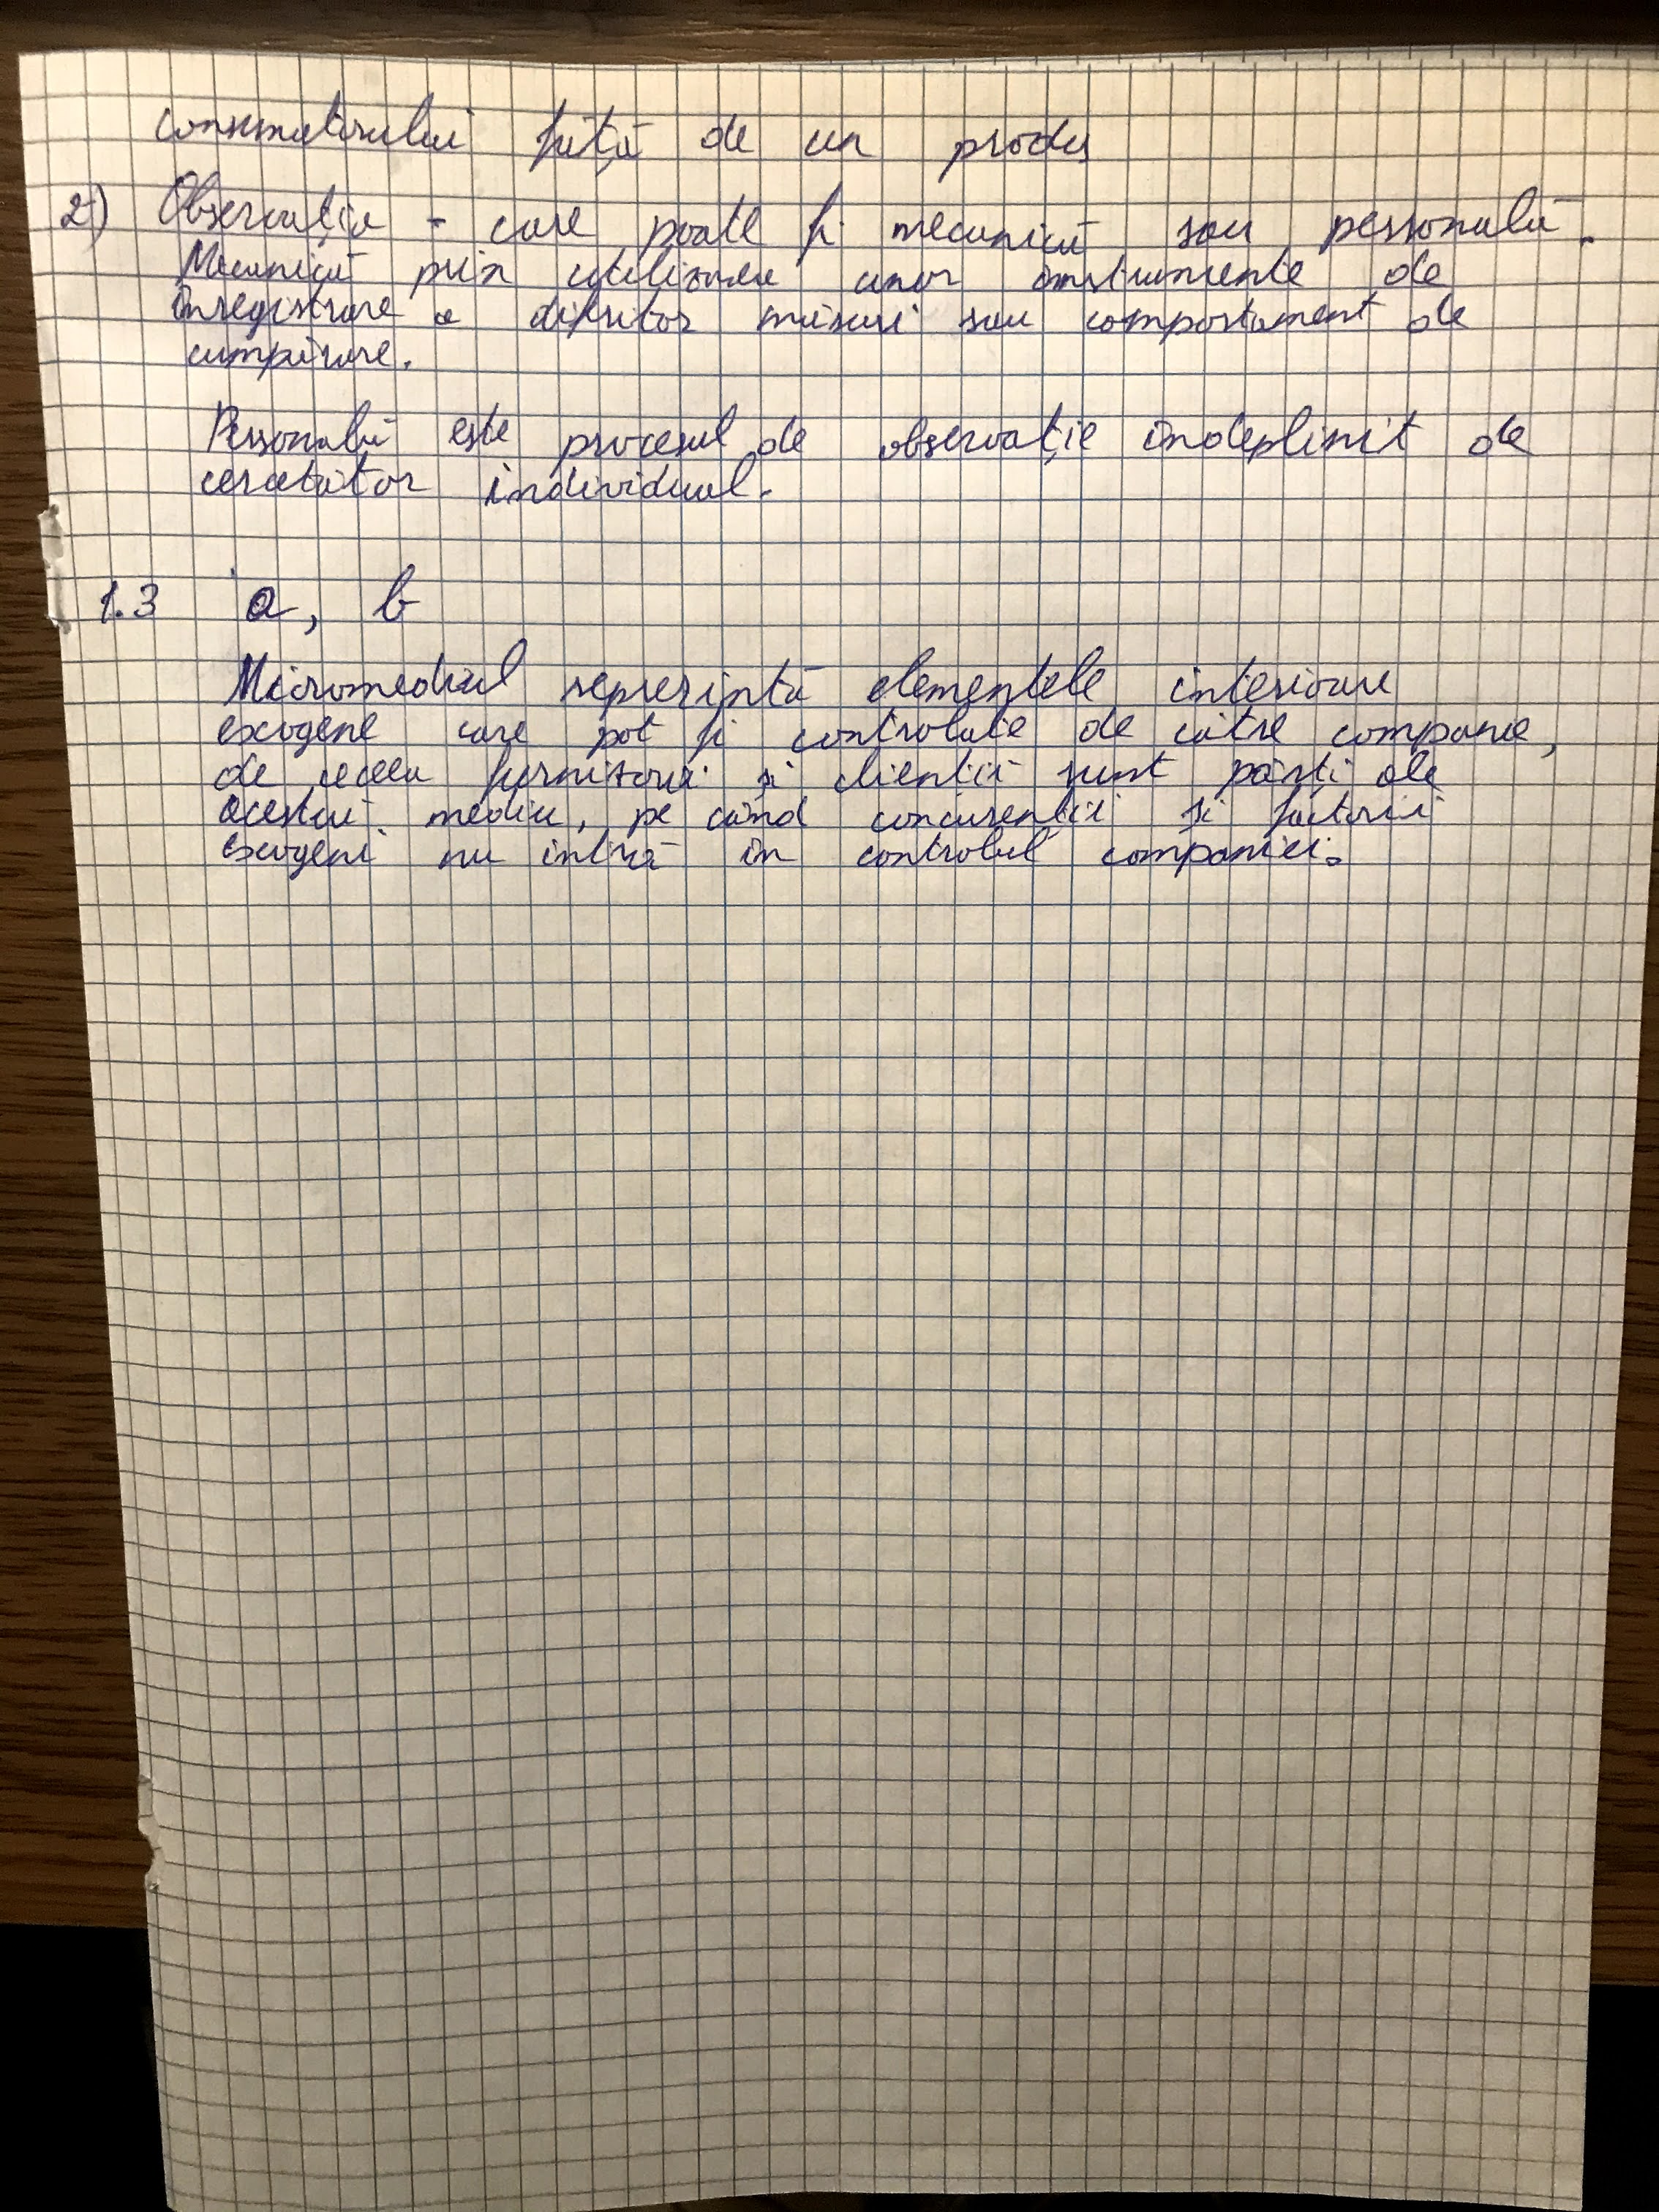 consumatorului față de un produs
2) Observația - care poate fi mecanică sau personală.
Mecanică prin utilizarea unor instrumente de
înregistrare a diferitor măsuri sau comportament de
cumpărare.
Personală este procesul de observație îndeplinit de
cercetător individual.
1.3 a, b
Micromediul reprezintă elementele interioare
exogene care pot fi controlate de către companie,
de aceea furnizorii și clienții sunt părți ale
acestui mediu, pe când concurenții și factorii
exogeni nu intră în controlul companiei.